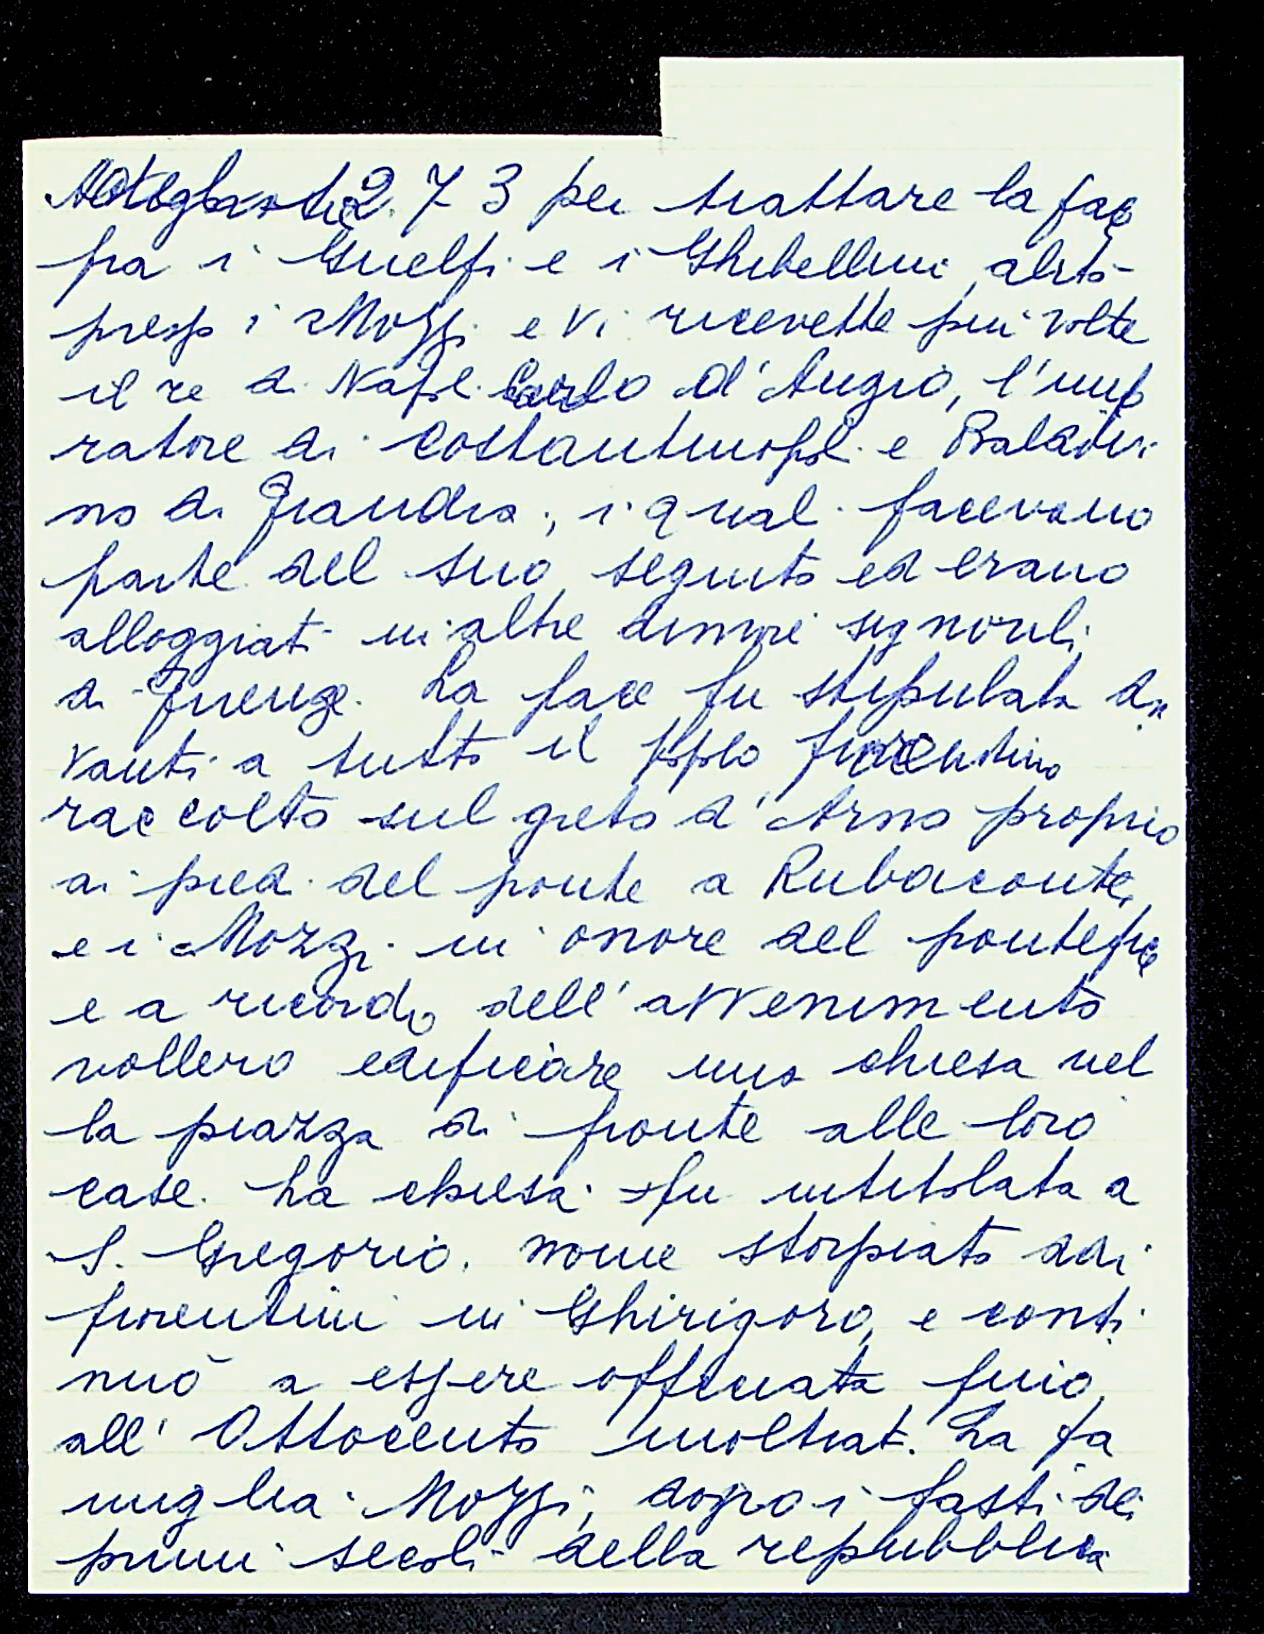 1273 per trattare la pace
fra i Guelfi e i Ghibellini, abitò
presso i Mozzi e vi ricevette più volte
il re di Napoli Carlo d'Angiò, l'impe
ratore di Costantinopoli e Baldovi
no di Fiandra, i quali facevano
parte del suo seguito ed erano
alloggiati in altre dimore signorili
di Firenze. La pace fu stipulata da
vanti a tutto il popolo fiorentino
raccolto sul greto d'Arno proprio
ai piedi del ponte a Rubaconte,
e i Mozzi in onore del pontefice
e a ricordo dell'avvenimento
vollero edificare una chiesa nel
la piazza di fronte alle loro
case. La chiesa fu intitolata a
S. Gregorio, nome storpiato dai
fiorentini in Ghirigoro, e conti
nuò a essere officiata fino
all'Ottocento inoltrat. La fa
miglia Mozzi, dopo i fasti dei
primi secoli della repubblica